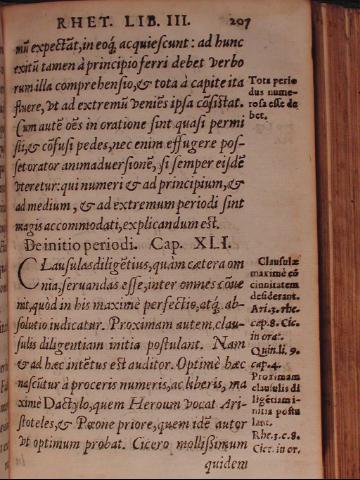 RHET. LIB. III. 207
mũ expectãt, in eoq́; acquiescunt: ad hunc
exitũ tamen à principio ferri debet verbo
rum illa comprehensio, & tota à capite ita
fluere, vt ad extremũ veniẽs ipsa cõsistat.
Cum autẽ oẽs in oratione sint quasi permi
sti, & cõfusi pedes, nec enim effugere pos-
set orator animaduersionẽ, si semper eisdẽ
vteretur: qui numeri & ad principium, &
ad medium, & ad extremum periodi sint
magis accommodati, explicandum est.
De initio periodi. Cap. XLI.
CLausulas diligẽtius, quàm cætera om
nia, seruandas esse, inter omnes cõue
nit, quòd in his maximè perfectio, atq́; ab-
solutio indicatur. Proximam autem, clau-
sulis diligentiam initia postulant. Nam
& ad hæc intẽtus est auditor. Optimè hæc
nascũtur à proceris numeris, ac liberis, ma
ximè Dactylo, quem Heroum vocat Ari-
stoteles, & Pæone priore, quem idẽ autor
vt optimum probat. Cicero mollissimum
quidem
Tota perio
dus nume-
rosa esse de
bet.
Clausulæ
maximè cõ
cinnitatem
desiderant.
Ari. 3. rhe.
cap. 8. Cic.
in orat.
Quin. li. 9.
cap. 4.
Proximam
clausulis di
ligẽtiam i-
nitia postu
lant.
Rhe. 3. c. 8.
Cic. in or.